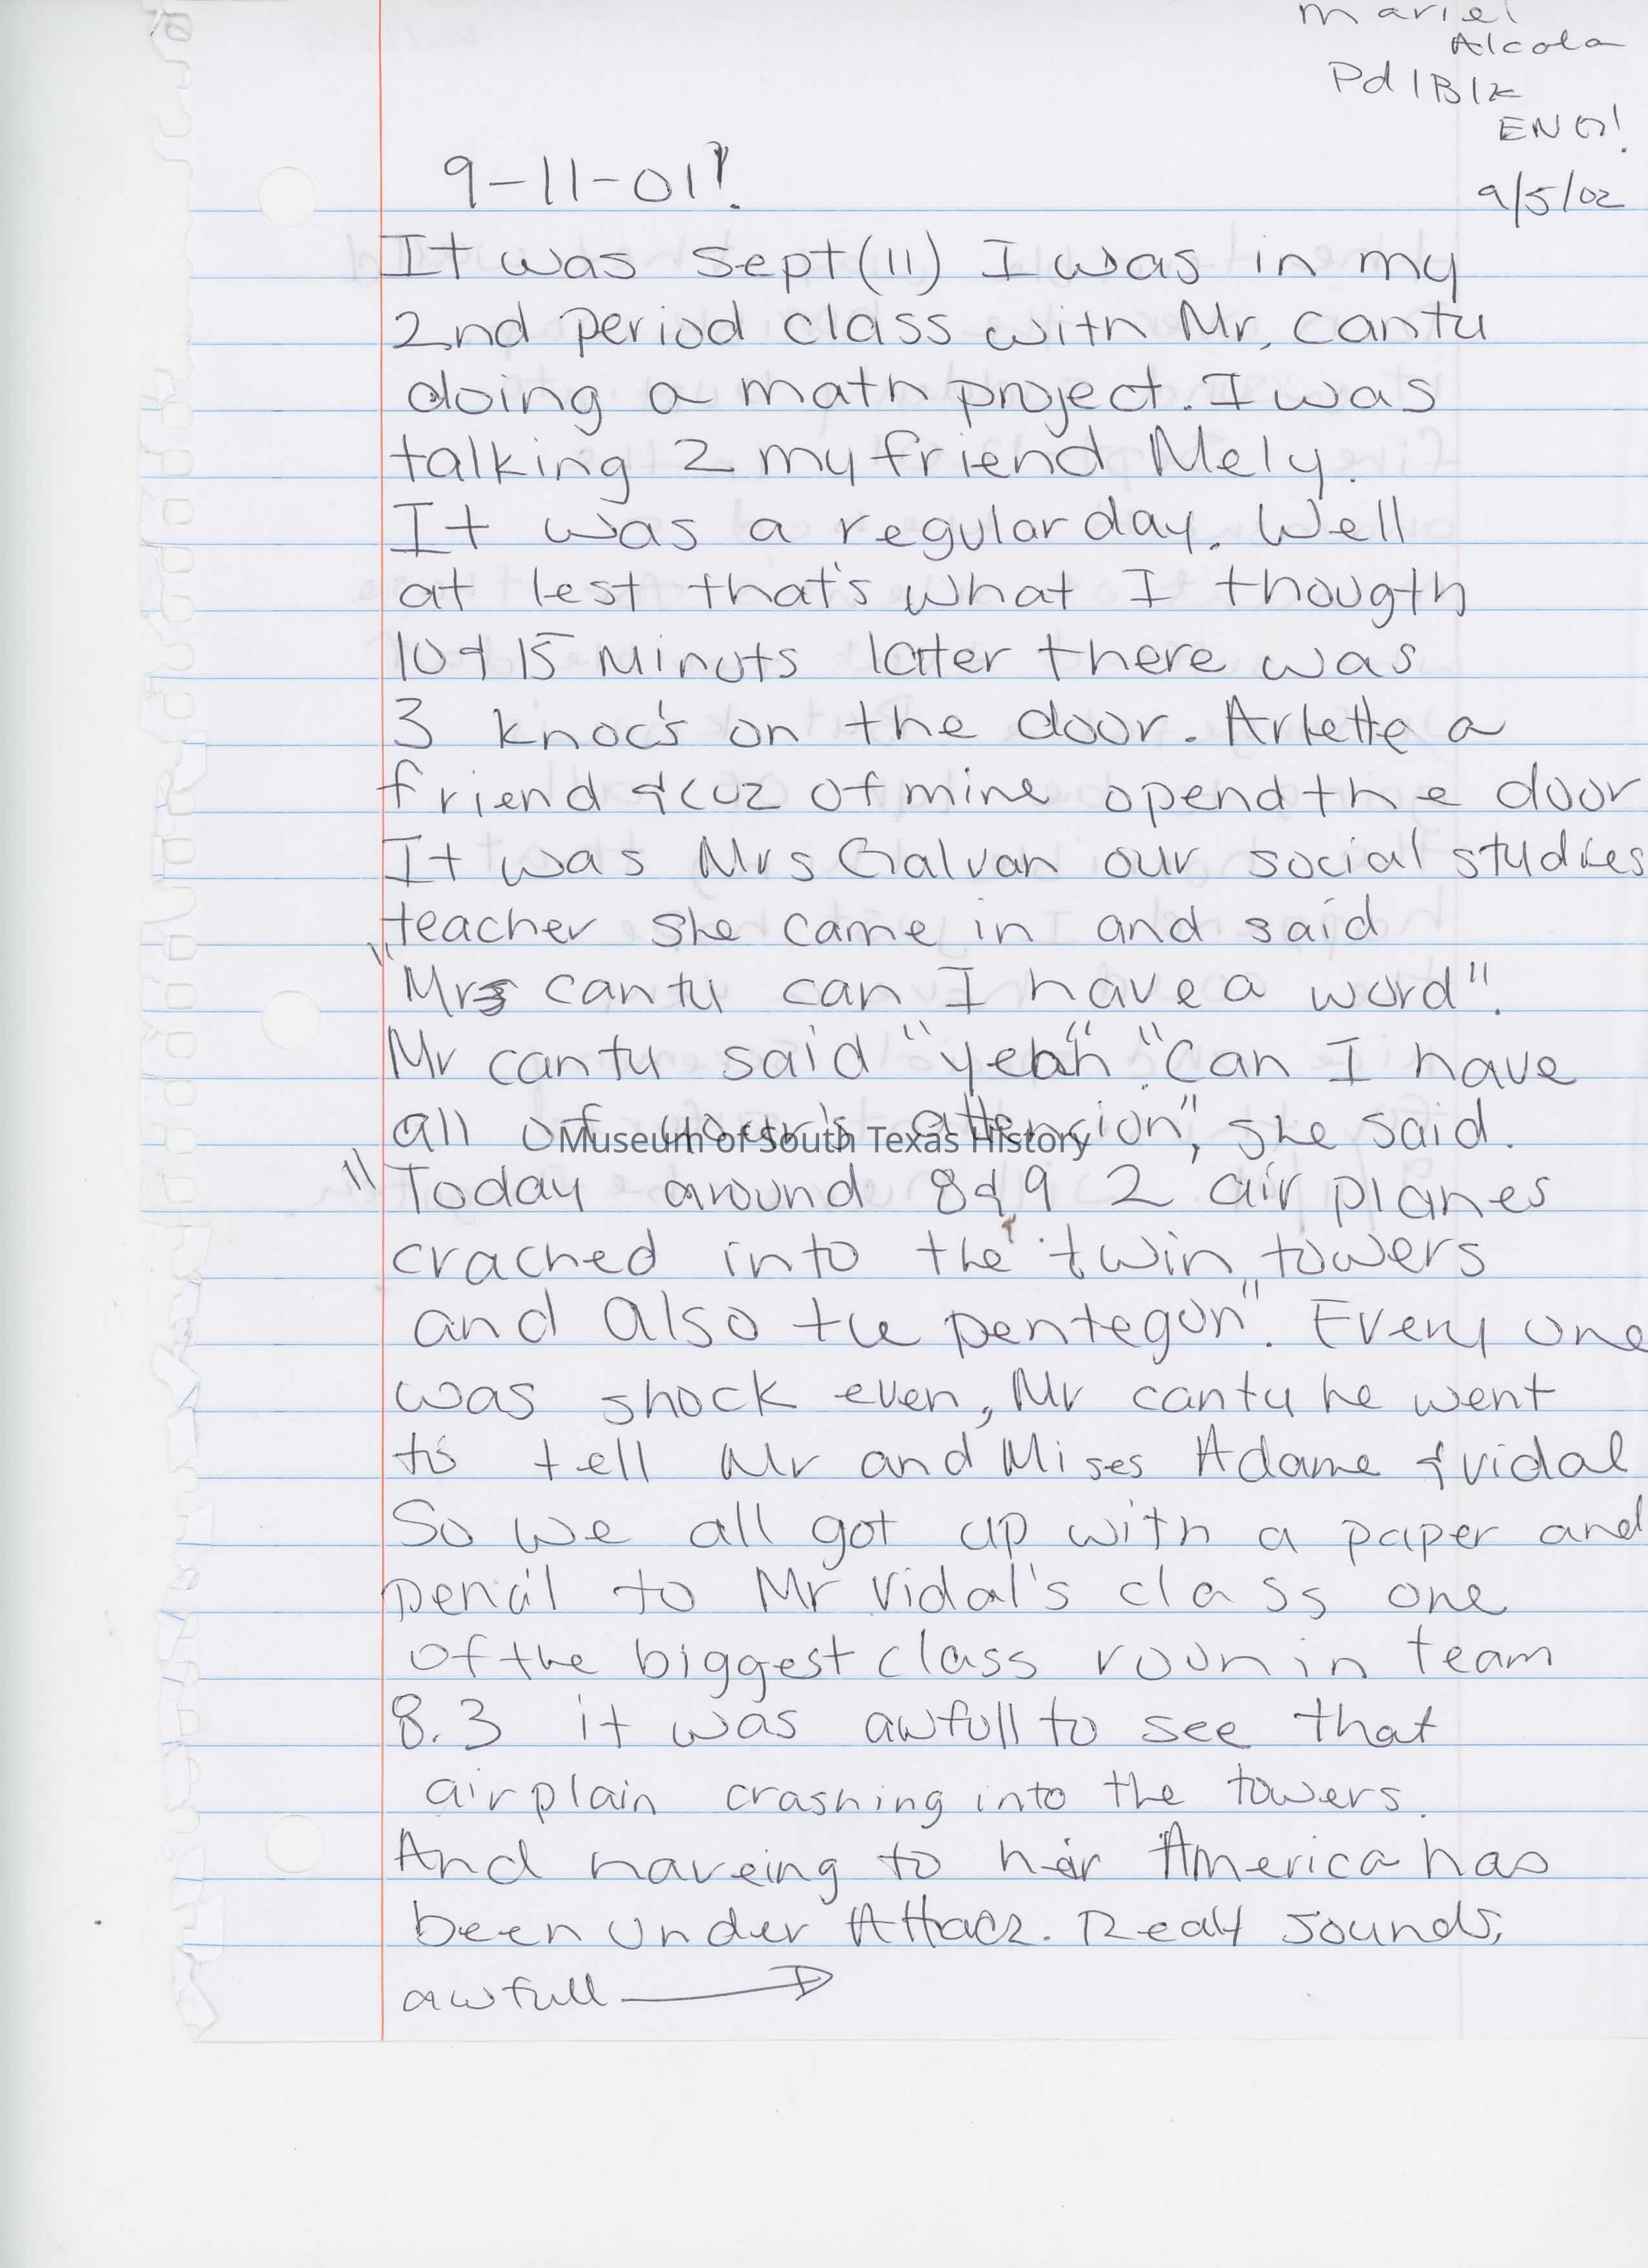 Mariel
Alcola
Pd 1Blk
ENG!
9/5/02
9-11-01!
It was Sept (11) I was in my
2nd period class with Mr. cantu
doing a math project. I was
talking 2 my friend Mely.
It was a regular day. Well
at lest that's what I thougth
10 & 15 Minuts later there was
3 knoc's on the door. Arlette a
friend & cuz of mine opend the door
It was Mrs Galvan our social studies
teacher she came in and said
"Mrs cantu can I have a word".
Mr cantu said "yeah". "Can I have
all of your's attencion", she said.
"Today around 8 & 9 2 air planes
crached into the twin towers
and also the pentegon". Every one
was shock even, Mr cantu he went
to tell Mr and Mises Adame & vidal
So we all got up with a paper and
pencil to Mr Vidal's class one
of the biggest class room in team
8.3 it was awfull to see that
airplain crashing into the towers.
And haveing to hear America has
been under Attack. Realy sounds,
awfull →
Museum of South Texas History